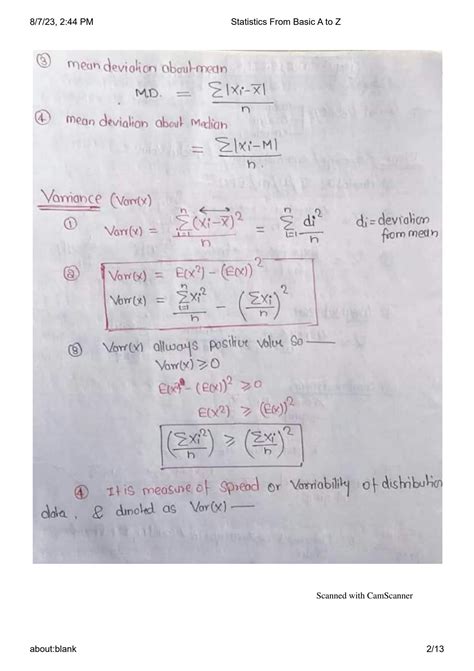 8/7/23, 2:44 PM Statistics From Basic A to Z
③ mean deviation about mean
M.D. = Σ|xi-x̄| / n
④ mean deviation about Median
= Σ|xi-M| / n.
Varriance (Varr(x)
① Varr(x) = Σ_{i=1}^{n} (xi-x̄)² / n = Σ_{i=1}^{n} di² / n di = deviation from mean
② Varr(x) = E(x²) - (E(x))²
Varr(x) = Σ_{i=1}^{n} xi² / n - (Σxi / n)²
③ Varr(x) allways positive value so —
Varr(x) ⩾ 0
E(x²) - (E(x))² ⩾ 0
E(x²) ⩾ (E(x))²
(Σxi² / n) ⩾ (Σxi / n)²
④ It is measure of spread or Varriability of distribution
data, & dinoted as Var(x) —
Scanned with CamScanner
about:blank 2/13